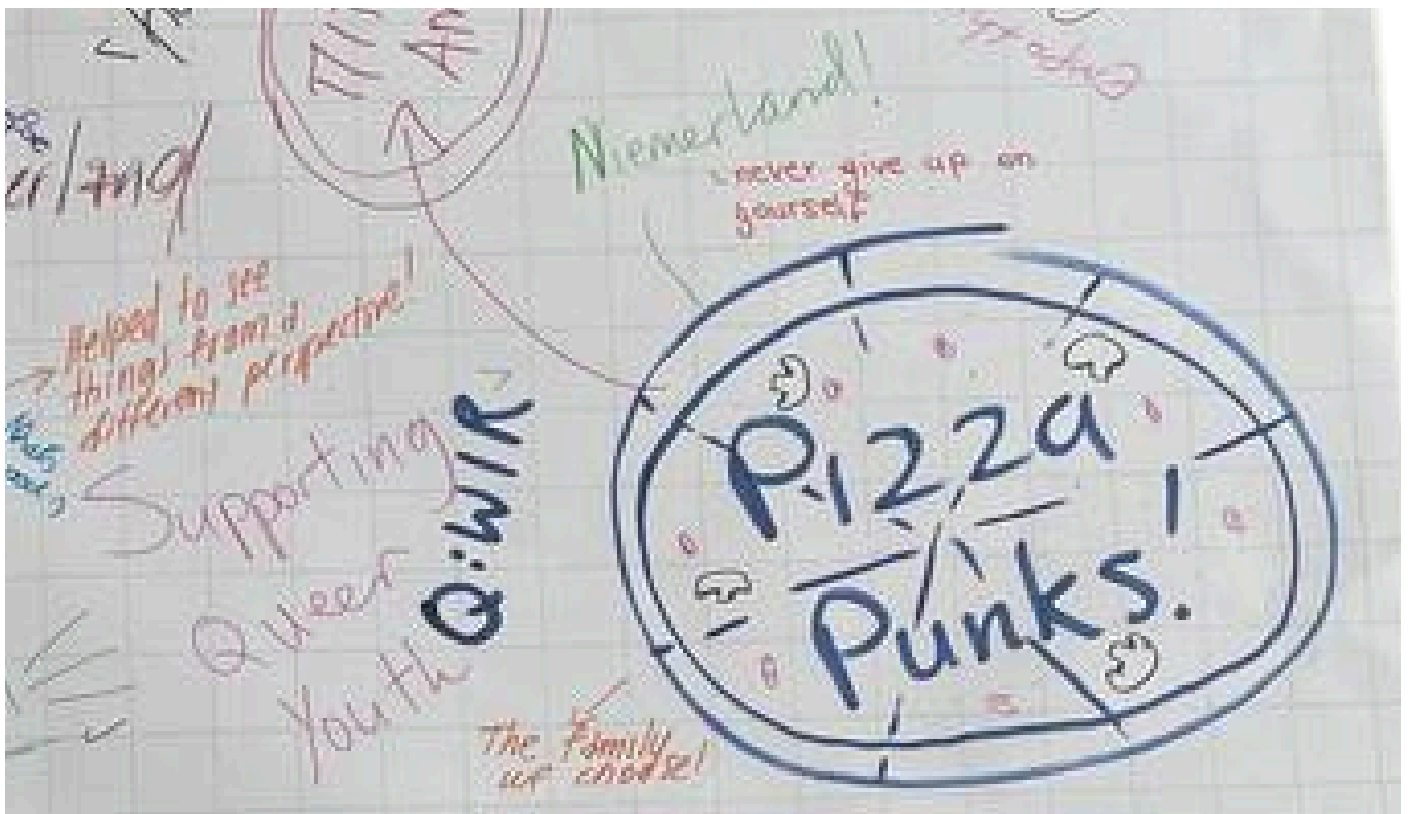 Niemerland!
never give up on
yourself
Helped to see
things from a
different perspective!
Supporting
Queer
Youth
Q:WIR
Pizza
Punks!
The Family
we choose!